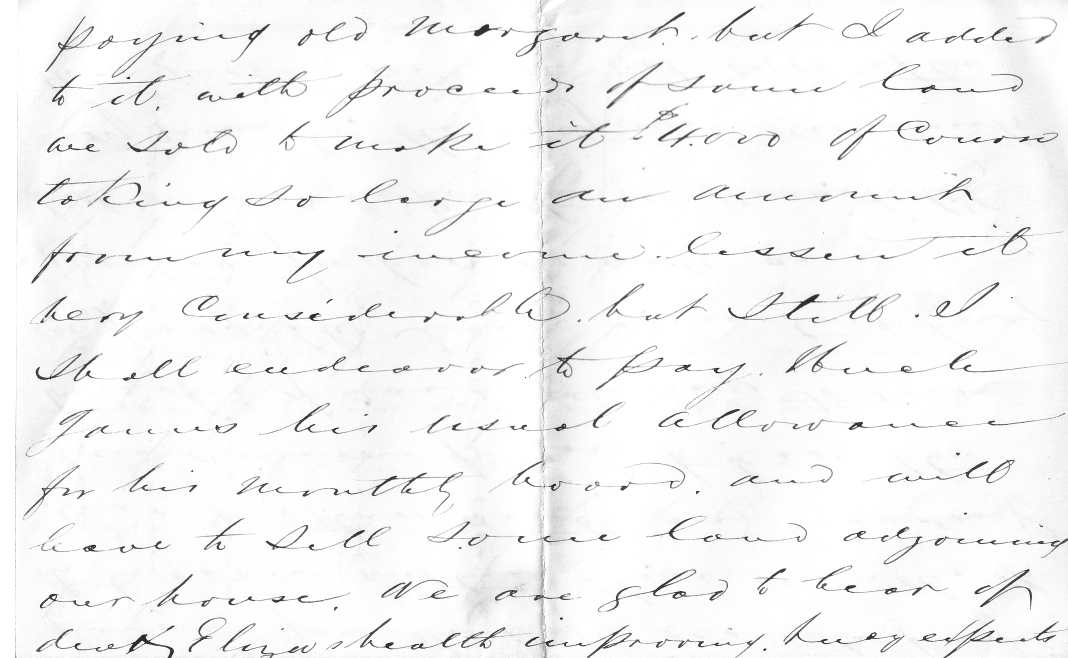 paying old Margaret. but I added
to it. with proceeds of some land
we sold to make it $4.000 of Course
taking so large an amount
from my income. lessen it
very Considerable. but Still. I
Shall endeavor to pay. Uncle
James his usual allowance
for his monthly board. and will
have to Sell Some land adjoining
our house. We are glad to hear of
Eliza's health improving. expects